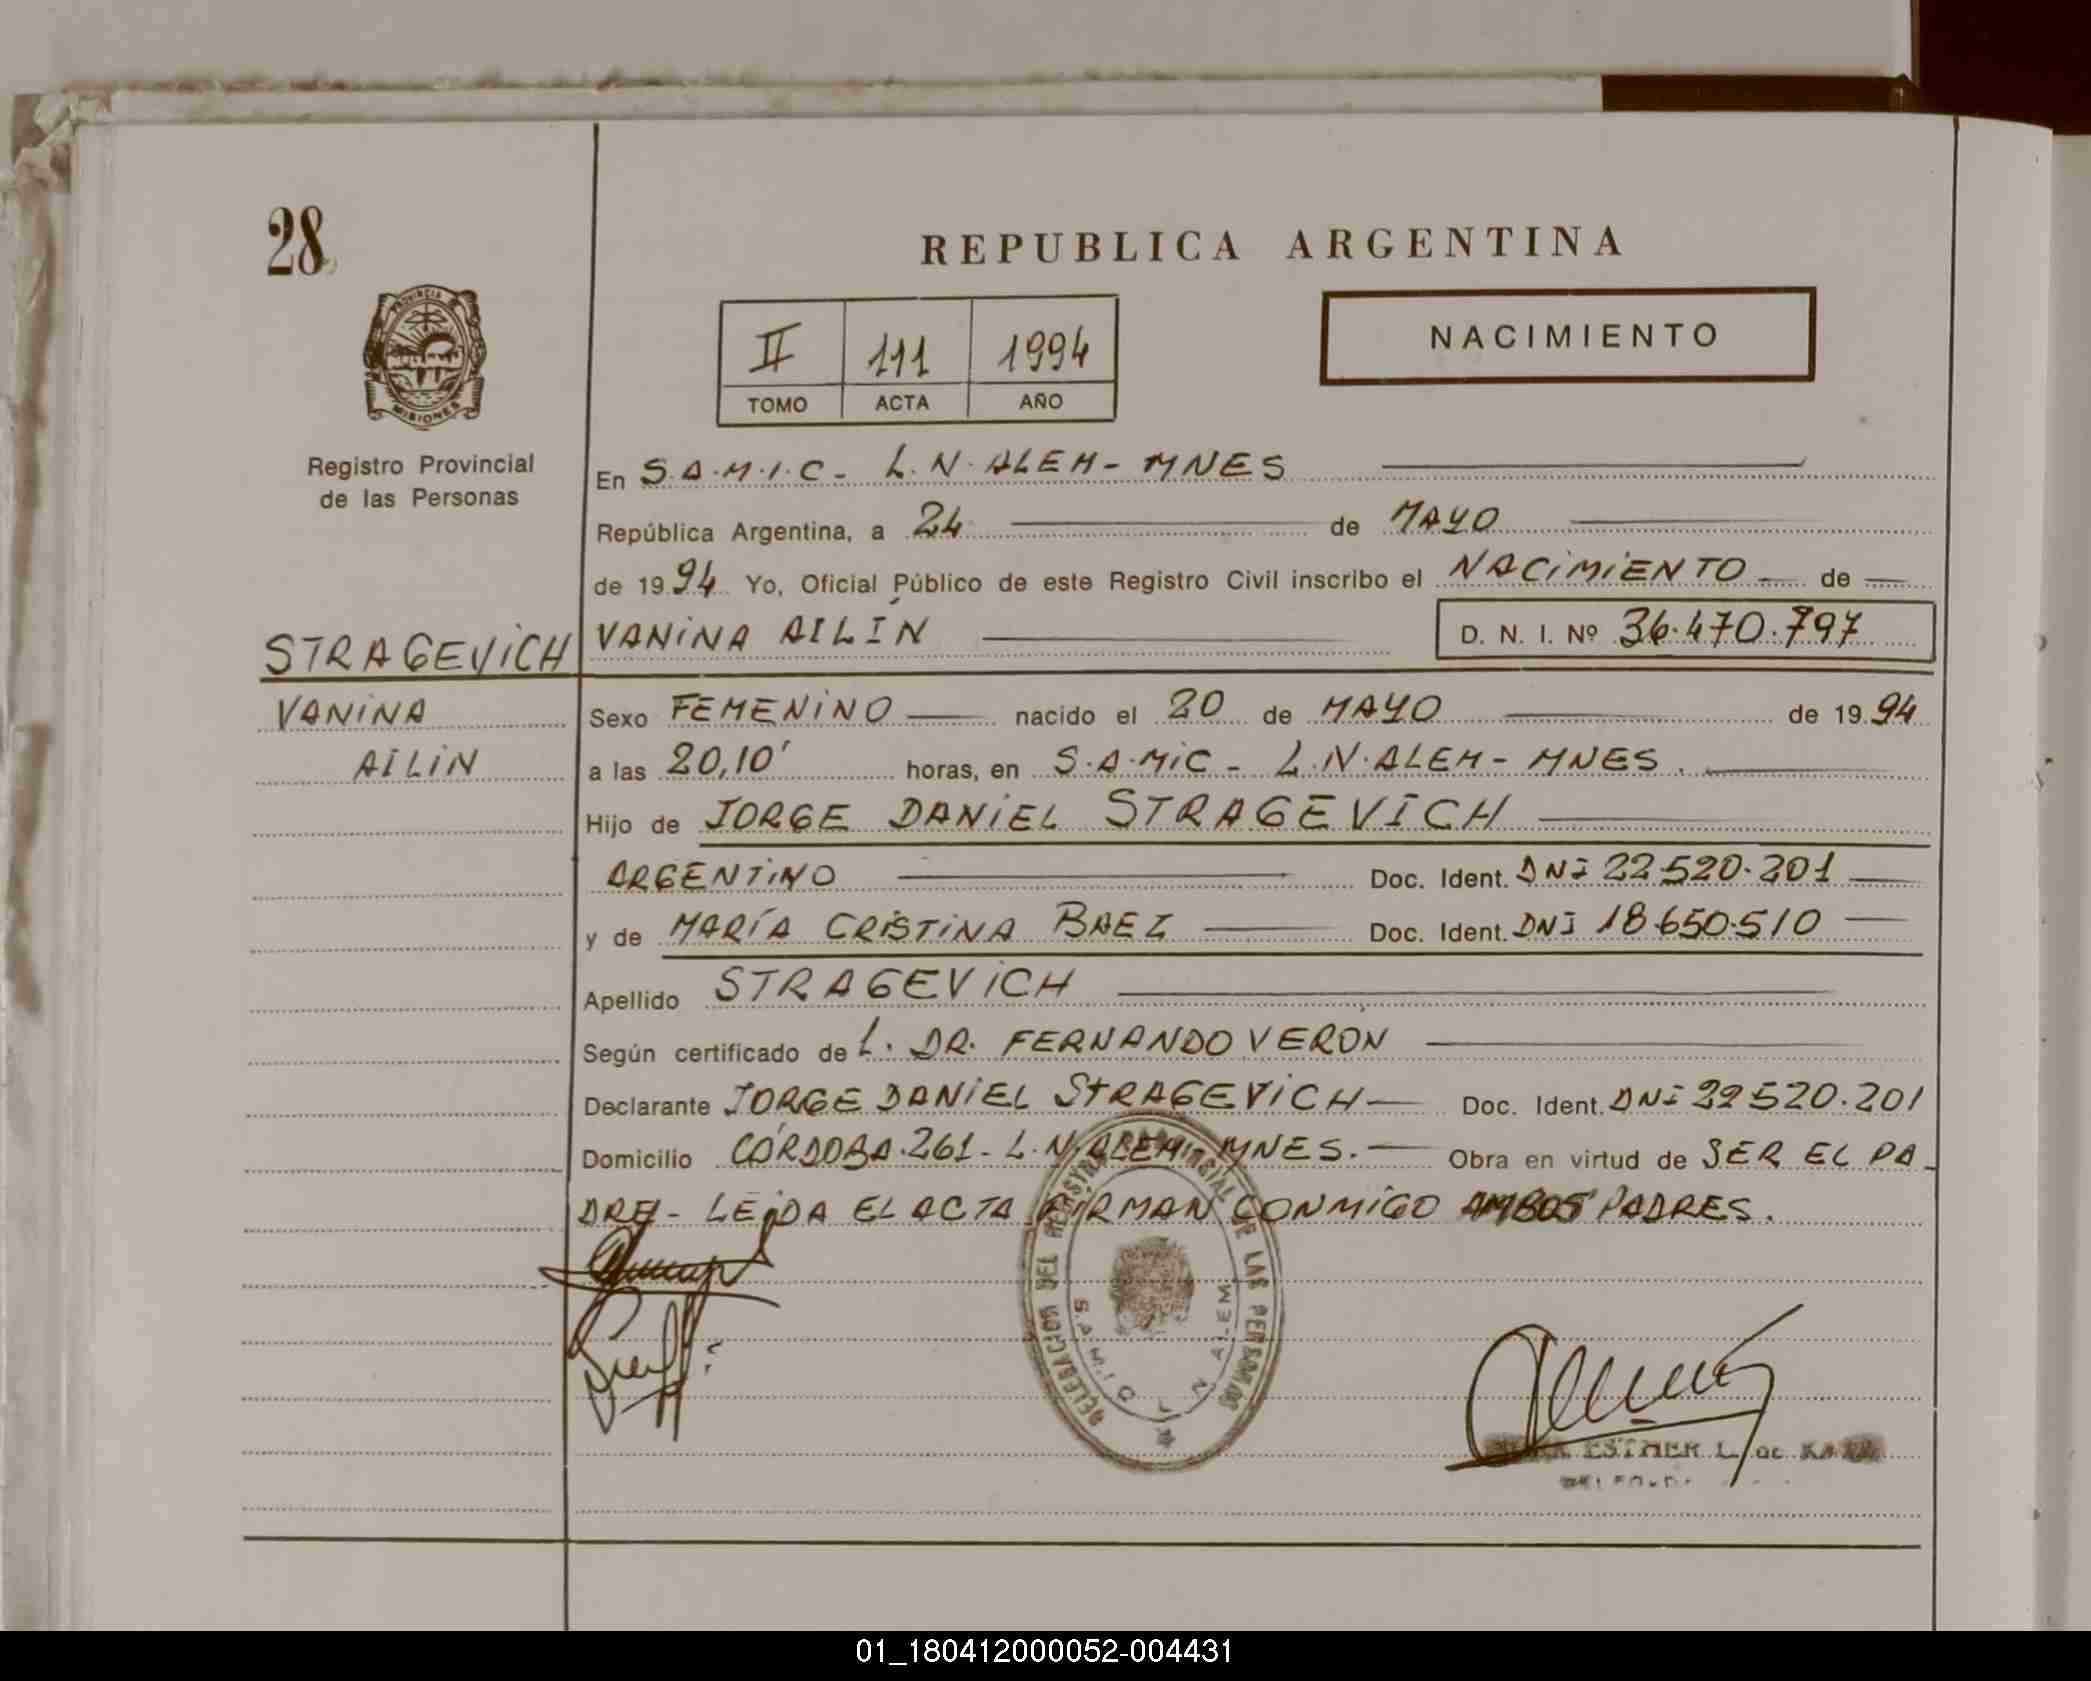 28
REPUBLICA ARGENTINA
PROVINCIA DE
MISIONES
Registro Provincial
de las Personas
II 111 1994
TOMO ACTA AÑO
NACIMIENTO
En S.A.M.I.C - L.N. ALEM - MNES
República Argentina, a 24 de MAYO
de 1994 Yo, Oficial Público de este Registro Civil inscribo el NACIMIENTO de
STRAGEVICH VANINA AILÍN D. N. I. Nº 36.470.797
VANINA Sexo FEMENINO nacido el 20 de MAYO de 1994
AILIN a las 20,10' horas, en S.A.MIC - L.N. ALEM - MNES.
Hijo de JORGE DANIEL STRAGEVICH
ARGENTINO Doc. Ident. DNI 22.520.201
y de MARÍA CRISTINA BAEZ Doc. Ident. DNI 18.650.510
Apellido STRAGEVICH
Según certificado de L. DR. FERNANDO VERON
Declarante JORGE DANIEL STRAGEVICH Doc. Ident. DNI 22520.201
Domicilio CÓRDOBA.261 - L.N. ALEM - MNES. Obra en virtud de SER EL PA-
DRE - LEIDA EL ACTA FIRMAN CONMIGO AMBOS PADRES.
DELEGACION DEL REGISTRO PROVINCIAL DE LAS PERSONAS
S.A.M.I.C L N ALEM
ESTHER L. de
01_180412000052-004431